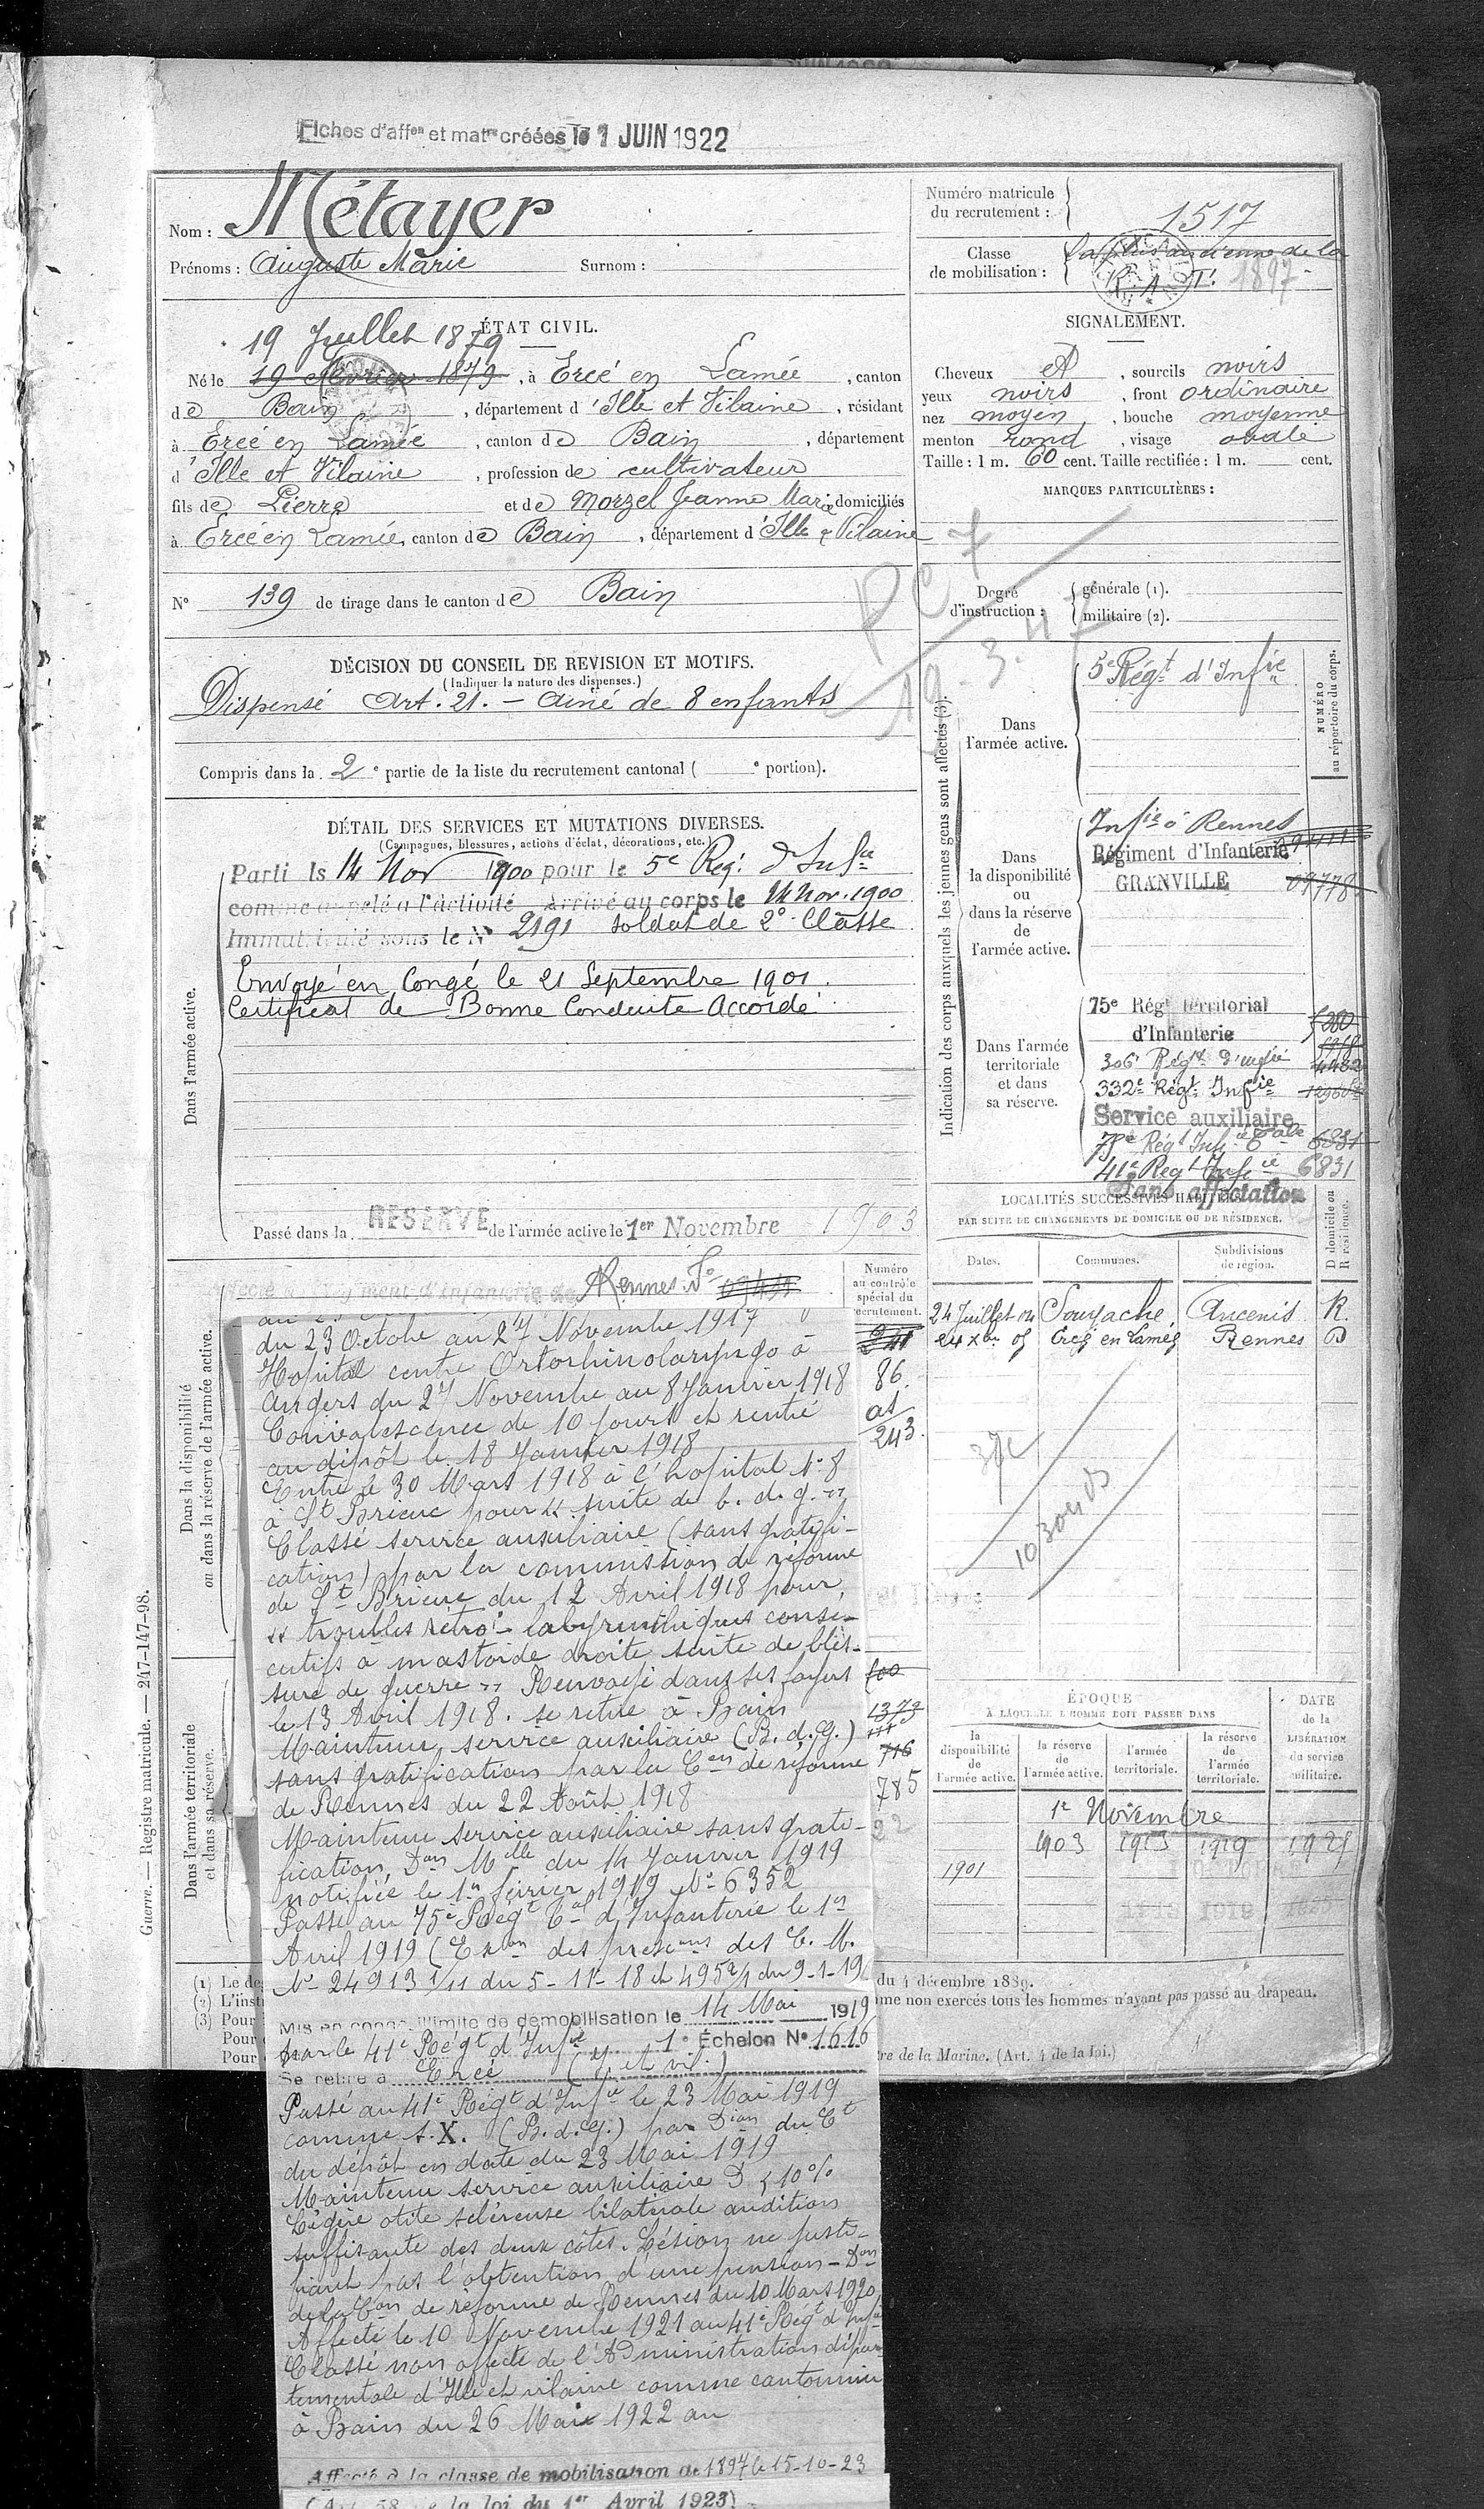 Fiches d'affon et matre créées le 1 JUIN 1922
Nom : Métayer
Prénoms : Auguste Marie Surnom :
Numéro matricule du recrutement : 1517
Classe de mobilisation : La plus ancienne de la
R. A. T. 1897
ÉTAT CIVIL.
19 Juillet 1879
Né le 19 février 1879, à Ercé en Lamée, canton
de Bain, département d'Ille et Vilaine, résidant
à Ercé en Lamée, canton de Bain, département
d'Ille et Vilaine, profession de cultivateur
fils de Pierre et de Morzel Jeanne Marie domiciliés
à Ercé en Lamée, canton de Bain, département d'Ille & Vilaine
N° 139 de tirage dans le canton de Bain
SIGNALEMENT.
Cheveux et, sourcils noirs
yeux noirs, front ordinaire
nez moyen, bouche moyenne
menton rond, visage ovale
Taille : 1 m. 60 cent. Taille rectifiée : 1 m. cent.
MARQUES PARTICULIÈRES :
Degré d'instruction : générale (1).
militaire (2).
DÉCISION DU CONSEIL DE REVISION ET MOTIFS.
(Indiquer la nature des dispenses.)
Dispensé Art. 21. — Ainé de 8 enfants
Compris dans la 2e partie de la liste du recrutement cantonal ( e portion).
DÉTAIL DES SERVICES ET MUTATIONS DIVERSES.
(Campagnes, blessures, actions d'éclat, décorations, etc.)
Dans l'armée active.
Parti le 14 Nov 1900 pour le 5e Reg. d'Infie
comme appelé à l'activité Arrivé au corps le 14 Nov. 1900
Immatriculé sous le N° 2191 soldat de 2e Classe
Envoyé en Congé le 21 Septembre 1901.
Certificat de Bonne Conduite Accordé
Passé dans la RÉSERVE de l'armée active le 1er Novembre 1903
Indication des corps auxquels les jeunes gens sont affectés (3).
NUMÉRO au répertoire du corps.
Dans l'armée active.
5e Régt d'Infie
Dans la disponibilité ou dans la réserve de l'armée active.
Infie à Rennes
Régiment d'Infanterie
GRANVILLE 09778
Dans l'armée territoriale et dans sa réserve.
75e Régt territorial
d'Infanterie
306e Régt d'infie 4482
332e Régt Infie
Service auxiliaire
75e Régt Infie Tale 6831
41e Régt Infie 6831
Sans affectation
LOCALITÉS SUCCESSIVES HABITÉES
PAR SUITE DE CHANGEMENTS DE DOMICILE OU DE RÉSIDENCE.
Dates. Communes. Subdivisions de région. D domicile ou R résidence.
24 Juillet 04 Ancenis R.
24 Xbre 05 Ercé en Lamée Rennes D
Dans la disponibilité ou dans la réserve de l'armée active.
Rennes
Numéro au contrôle spécial du recrutement.
241
86.
at
243.
du 23 Octobre au 27 Novembre 1917
Hopital centre Ortorhinolaryngo à
Angers du 27 Novembre au 8 Janvier 1918
Convalescence de 10 jours et rentré
au dépôt le 18 Janvier 1918
Entré le 30 Mars 1918 à l'hopital N° 8
à St Brieuc pour "suite de b. d. g."
Classé service auxiliaire (sans gratifi-
cation) par la commission de réforme
de St Brieuc du 12 Avril 1918 pour,
"troubles rétro-labyrinthiques consé-
cutifs à mastoïde droite suite de bles-
sure de guerre" Renvoyé dans ses foyers
le 13 Avril 1918. se retire à Bain
Maintenu service auxiliaire (B. d. G.)
sans gratification par la Con de réforme
de Rennes du 22 Août 1918
Maintenu service auxiliaire sans grati-
fication, Don Mlle du 14 Janvier 1919
notifiée le 1er février 1919 N° 6352
Passé au 75e Régt Tal d'Infanterie le 1er
Avril 1919 (Exon des prescons des C. M.
N° 24913 1/11 du 5-11-18 et 495 2/1 du 9-1-19
Mis en congé illimité de démobilisation le 14 Mai 1919
par le 41e Régt d'Infie 1e Échelon N° 1616
Se retire à Ercé (I. et vil.)
Passé au 41e Régt d'Infie le 23 Mai 1919
comme s. X. (B. d. G.) par Dion du Ct
du dépôt en date du 23 Mai 1919
Maintenu service auxiliaire D. < 10%
Légère otite scléreuse bilatérale audition
suffisante des deux côtés. Lésion ne justi-
fiant pas l'obtention d'une pension - Don
de la Con de réforme de Rennes du 10 Mars 1920
Affecté le 10 Novembre 1921 au 41e Régt d'Infie
Classé non affecté de l'Administration dépar-
tementale d'Ille et vilaine comme cantonnier
à Bain du 26 Mai 1922 au
Affecté à la classe de mobilisation de 1897 le 15-10-23
(Art 58 de la loi du 1er Avril 1923)
Dans l'armée territoriale et dans sa réserve.
1373
716
785
ÉPOQUE
À LAQUELLE L'HOMME DOIT PASSER DANS
la disponibilité de l'armée active. la réserve de l'armée active. l'armée territoriale. la réserve de l'armée territoriale. DATE de la LIBÉRATION du service militaire.
1er Novembre
1901 1903 1913 1919 1925
Guerre. — Registre matricule. — 247-147-98.
(1) Le de
(2) L'inst
(3) Pour
Pour
Pour
du 4 décembre 1889.
me non exercés tous les hommes n'ayant pas passé au drapeau.
tre de la Marine. (Art. 4 de la loi.)